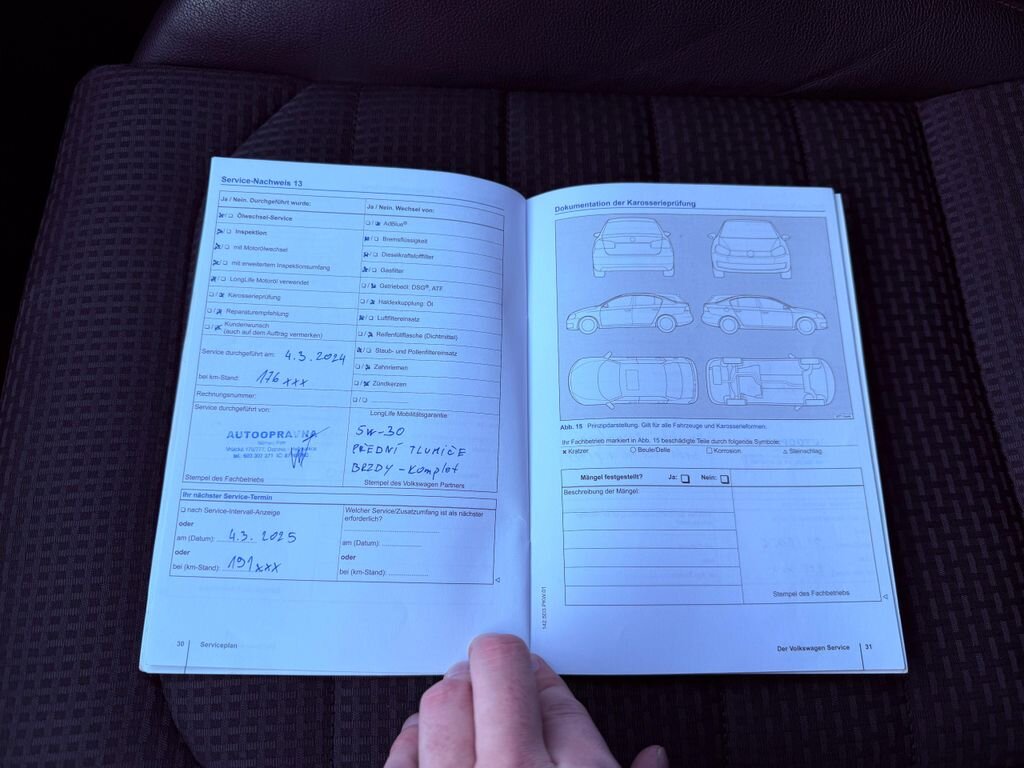 Service-Nachweis 13
Ja / Nein. Durchgeführt wurde:
Ölwechsel-Service
Inspektion
mit Motorölwechsel
mit erweitertem Inspektionsumfang
LongLife Motoröl verwendet
Karosserieprüfung
Reparaturempfehlung
Kundenwunsch
(auch auf dem Auftrag vermerken)
Service durchgeführt am: 4.3.2024
bei km-Stand: 176xxx
Rechnungsnummer:
Service durchgeführt von:
AUTOOPRAVNA
Stempel des Fachbetriebs
Ja / Nein. Wechsel von:
AdBlue®
Bremsflüssigkeit
Dieselkraftstofffilter
Gasfilter
Getriebeöl: DSG®, ATF
Haldexkupplung: Öl
Luftfiltereinsatz
Reifenfüllflasche (Dichtmittel)
Staub- und Pollenfiltereinsatz
Zahnriemen
Zündkerzen
LongLife Mobilitätsgarantie:
5W-30
PŘEDNÍ TLUMIČE
BRZDY - komplet
Stempel des Volkswagen Partners
Ihr nächster Service-Termin
nach Service-Intervall-Anzeige
oder
am (Datum): 4.3.2025
oder
bei (km-Stand): 191xxx
Welcher Service/Zusatzumfang ist als nächster
erforderlich?
am (Datum):
oder
bei (km-Stand):
30 Serviceplan
Dokumentation der Karosserieprüfung
Abb. 15 Prinzipdarstellung. Gilt für alle Fahrzeuge und Karosserieformen.
Ihr Fachbetrieb markiert in Abb. 15 beschädigte Teile durch folgende Symbole:
x Kratzer ○ Beule/Delle □ Korrosion △ Steinschlag
Mängel festgestellt? Ja: Nein:
Beschreibung der Mängel:
Stempel des Fachbetriebs
142.5D3.PKW.01
Der Volkswagen Service 31